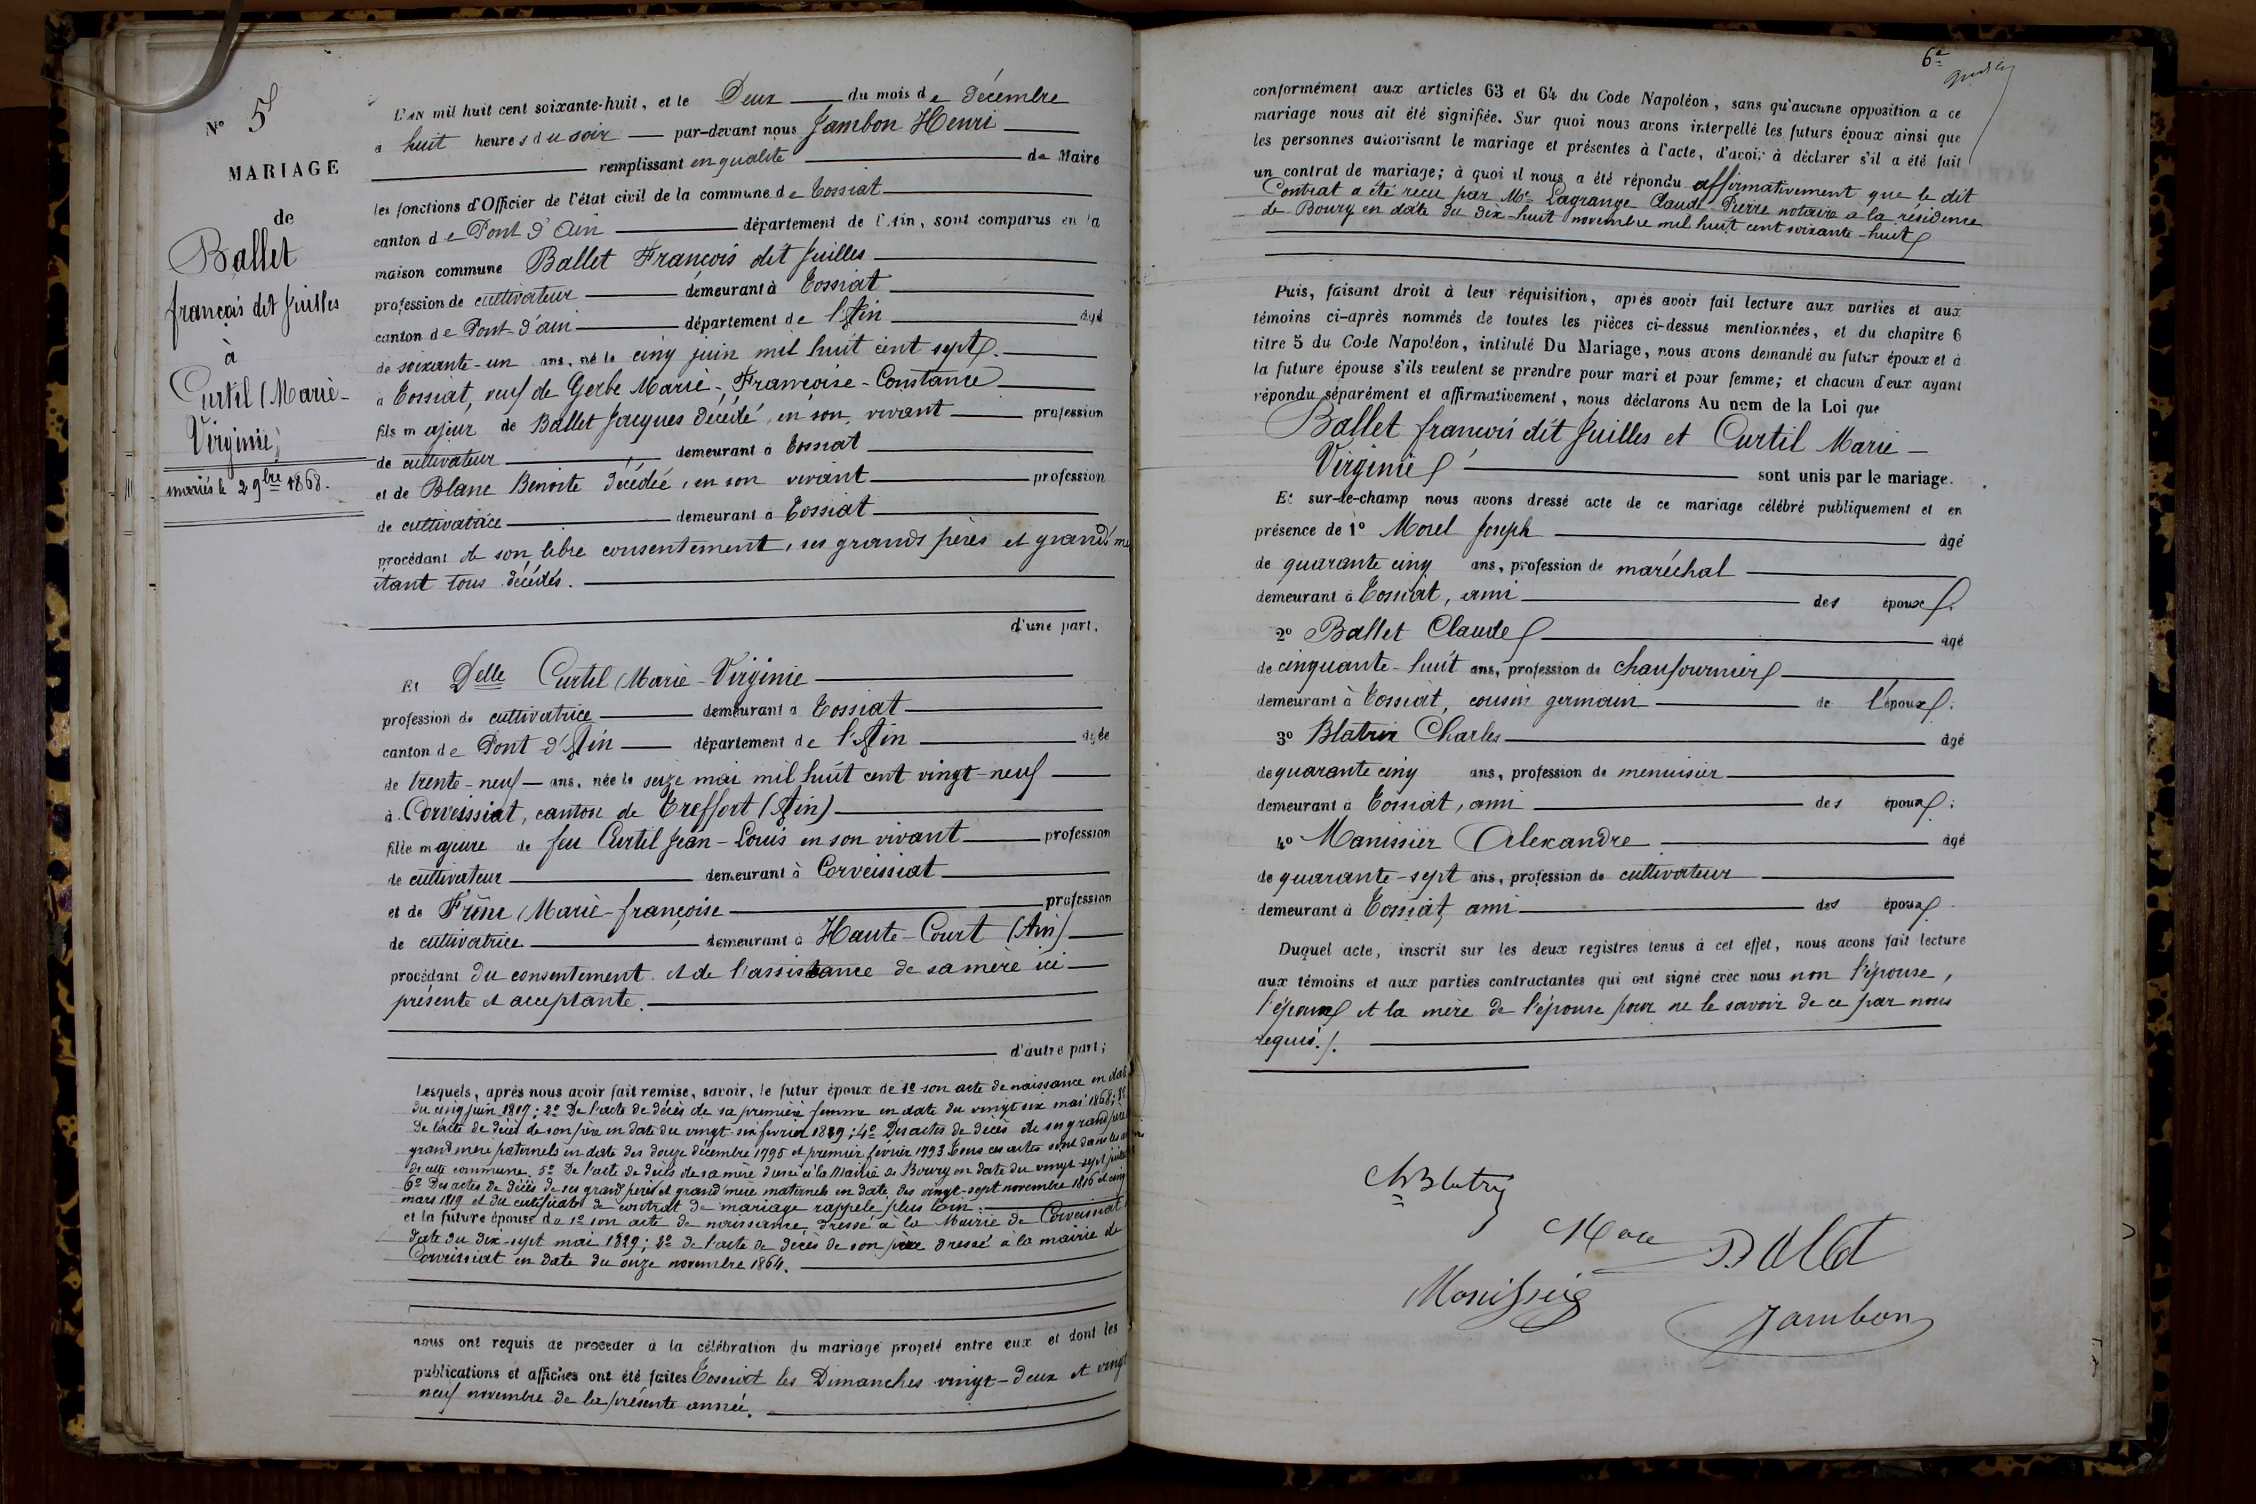 N° 5
MARIAGE
de
Ballet
françois dit Juilles
à
Curtil Marie-
Virginie;
mariés le 2 9bre 1868.
L'AN mil huit cent soixante-huit, et le Deux du mois de décembre
à huit heures du soir par-devant nous Jambon Henri
remplissant en qualité de Maire
les fonctions d'Officier de l'état civil de la commune de Tossiat
canton de Pont d'Ain département de l'Ain, sont comparus en la
maison commune Ballet François dit Juilles
profession de cultivateur demeurant à Tossiat
canton de Pont-d'ain département de l'Ain âgé
de soixante-un ans, né le cinq juin mil huit cent sept.
à Tossiat, veuf de Gerbe Marie-Françoise-Constance
fils majeur de Ballet Jacques décédé, en son vivant profession
de cultivateur demeurant à Tossiat
et de Blanc Benoite décédée, en son vivant profession
de cultivatrice demeurant à Tossiat
procédant de son libre consentement, ses grands pères et grand'mè
étant tous décédés.
d'une part.
Et Delle Curtil Marie-Virginie
profession de cultivatrice demeurant à Tossiat
canton de Pont d'Ain département de l'Ain âgée
de trente-neuf ans, née le seize mai mil huit cent vingt-neuf
à Corveissiat, canton de Treffort (Ain)
fille majeure de feu Curtil Jean-Louis en son vivant profession
de cultivateur demeurant à Corveissiat
et de Frêne Marie-françoise profession
de cultivatrice demeurant à Haute-Court (Ain)
procédant du consentement et de l'assistance de sa mère ici
présente et acceptante.
d'autre part;
Lesquels, après nous avoir fait remise, savoir, le futur époux de 1° son acte de naissance en date
du cinq juin 1807; 2° De l'acte de décès de sa première femme en date du vingt six mai 1868; 3°
De l'acte de décès de son père en date du vingt-six février 1829; 4° Des actes de décès de ses grand père
grand mère paternels en date des douze décembre 1795 et premier février 1793 Tous ces actes sont dans les
de cette commune. 5° De l'acte de décès de sa mère dressé à la Mairie de Bourg en date du vingt-sept
6° Des actes de décès de ses grand père et grand'mère maternels en date des vingt-sept novembre 1816 et cinq
mars 1819 et du certificat de contrat de mariage rappelé plus loin.
et la future épouse de 1° son acte de naissance dressé à la Mairie de Corveissiat
date du dix-sept mai 1829; 2° de l'acte de décès de son père dressé à la mairie de
Corveissiat en date du onze novembre 1864.
nous ont requis de procéder à la célébration du mariage projeté entre eux et dont les
publications et affiches ont été faites Tossiat les Dimanches vingt-deux et vingt
neuf novembre de la présente année.
6e
conformément aux articles 63 et 64 du Code Napoléon, sans qu'aucune opposition a ce
mariage nous ait été signifiée. Sur quoi nous avons interpellé les futurs époux ainsi que
les personnes autorisant le mariage et présentes à l'acte, d'avoir à déclarer s'il a été fait
un contrat de mariage; à quoi il nous a été répondu affirmativement que le dit
Contrat a été reçu par Me Lagrange Claude-Pierre notaire à la résidence
de Bourg en date du dix-huit novembre mil huit cent soixante-huit
Puis, faisant droit à leur réquisition, après avoir fait lecture aux parties et aux
témoins ci-après nommés de toutes les pièces ci-dessus mentionnées, et du chapitre 6
titre 5 du Code Napoléon, intitulé Du Mariage, nous avons demandé au futur époux et à
la future épouse s'ils veulent se prendre pour mari et pour femme; et chacun d'eux ayant
répondu séparément et affirmativement, nous déclarons Au nom de la Loi que
Ballet françois dit Juilles et Curtil Marie-
Virginie sont unis par le mariage.
Et sur-le-champ nous avons dressé acte de ce mariage célébré publiquement et en
présence de 1° Morel Joseph âgé
de quarante cinq ans, profession de maréchal
demeurant à Tossiat, ami des époux.
2° Ballet Claude âgé
de cinquante-huit ans, profession de chaufournier
demeurant à Tossiat, cousin germain de l'époux.
3° Blatrix Charles âgé
de quarante cinq ans, profession de menuisier
demeurant à Tossiat, ami des époux;
4° Manissier Alexandre âgé
de quarante-sept ans, profession de cultivateur
demeurant à Tossiat, ami des époux
Duquel acte, inscrit sur les deux registres tenus à cet effet, nous avons fait lecture
aux témoins et aux parties contractantes qui ont signé avec nous non l'épouse,
l'époux et la mère de l'épouse pour ne le savoir de ce par nous
requis./.
Ballet
Manissier
Jambon